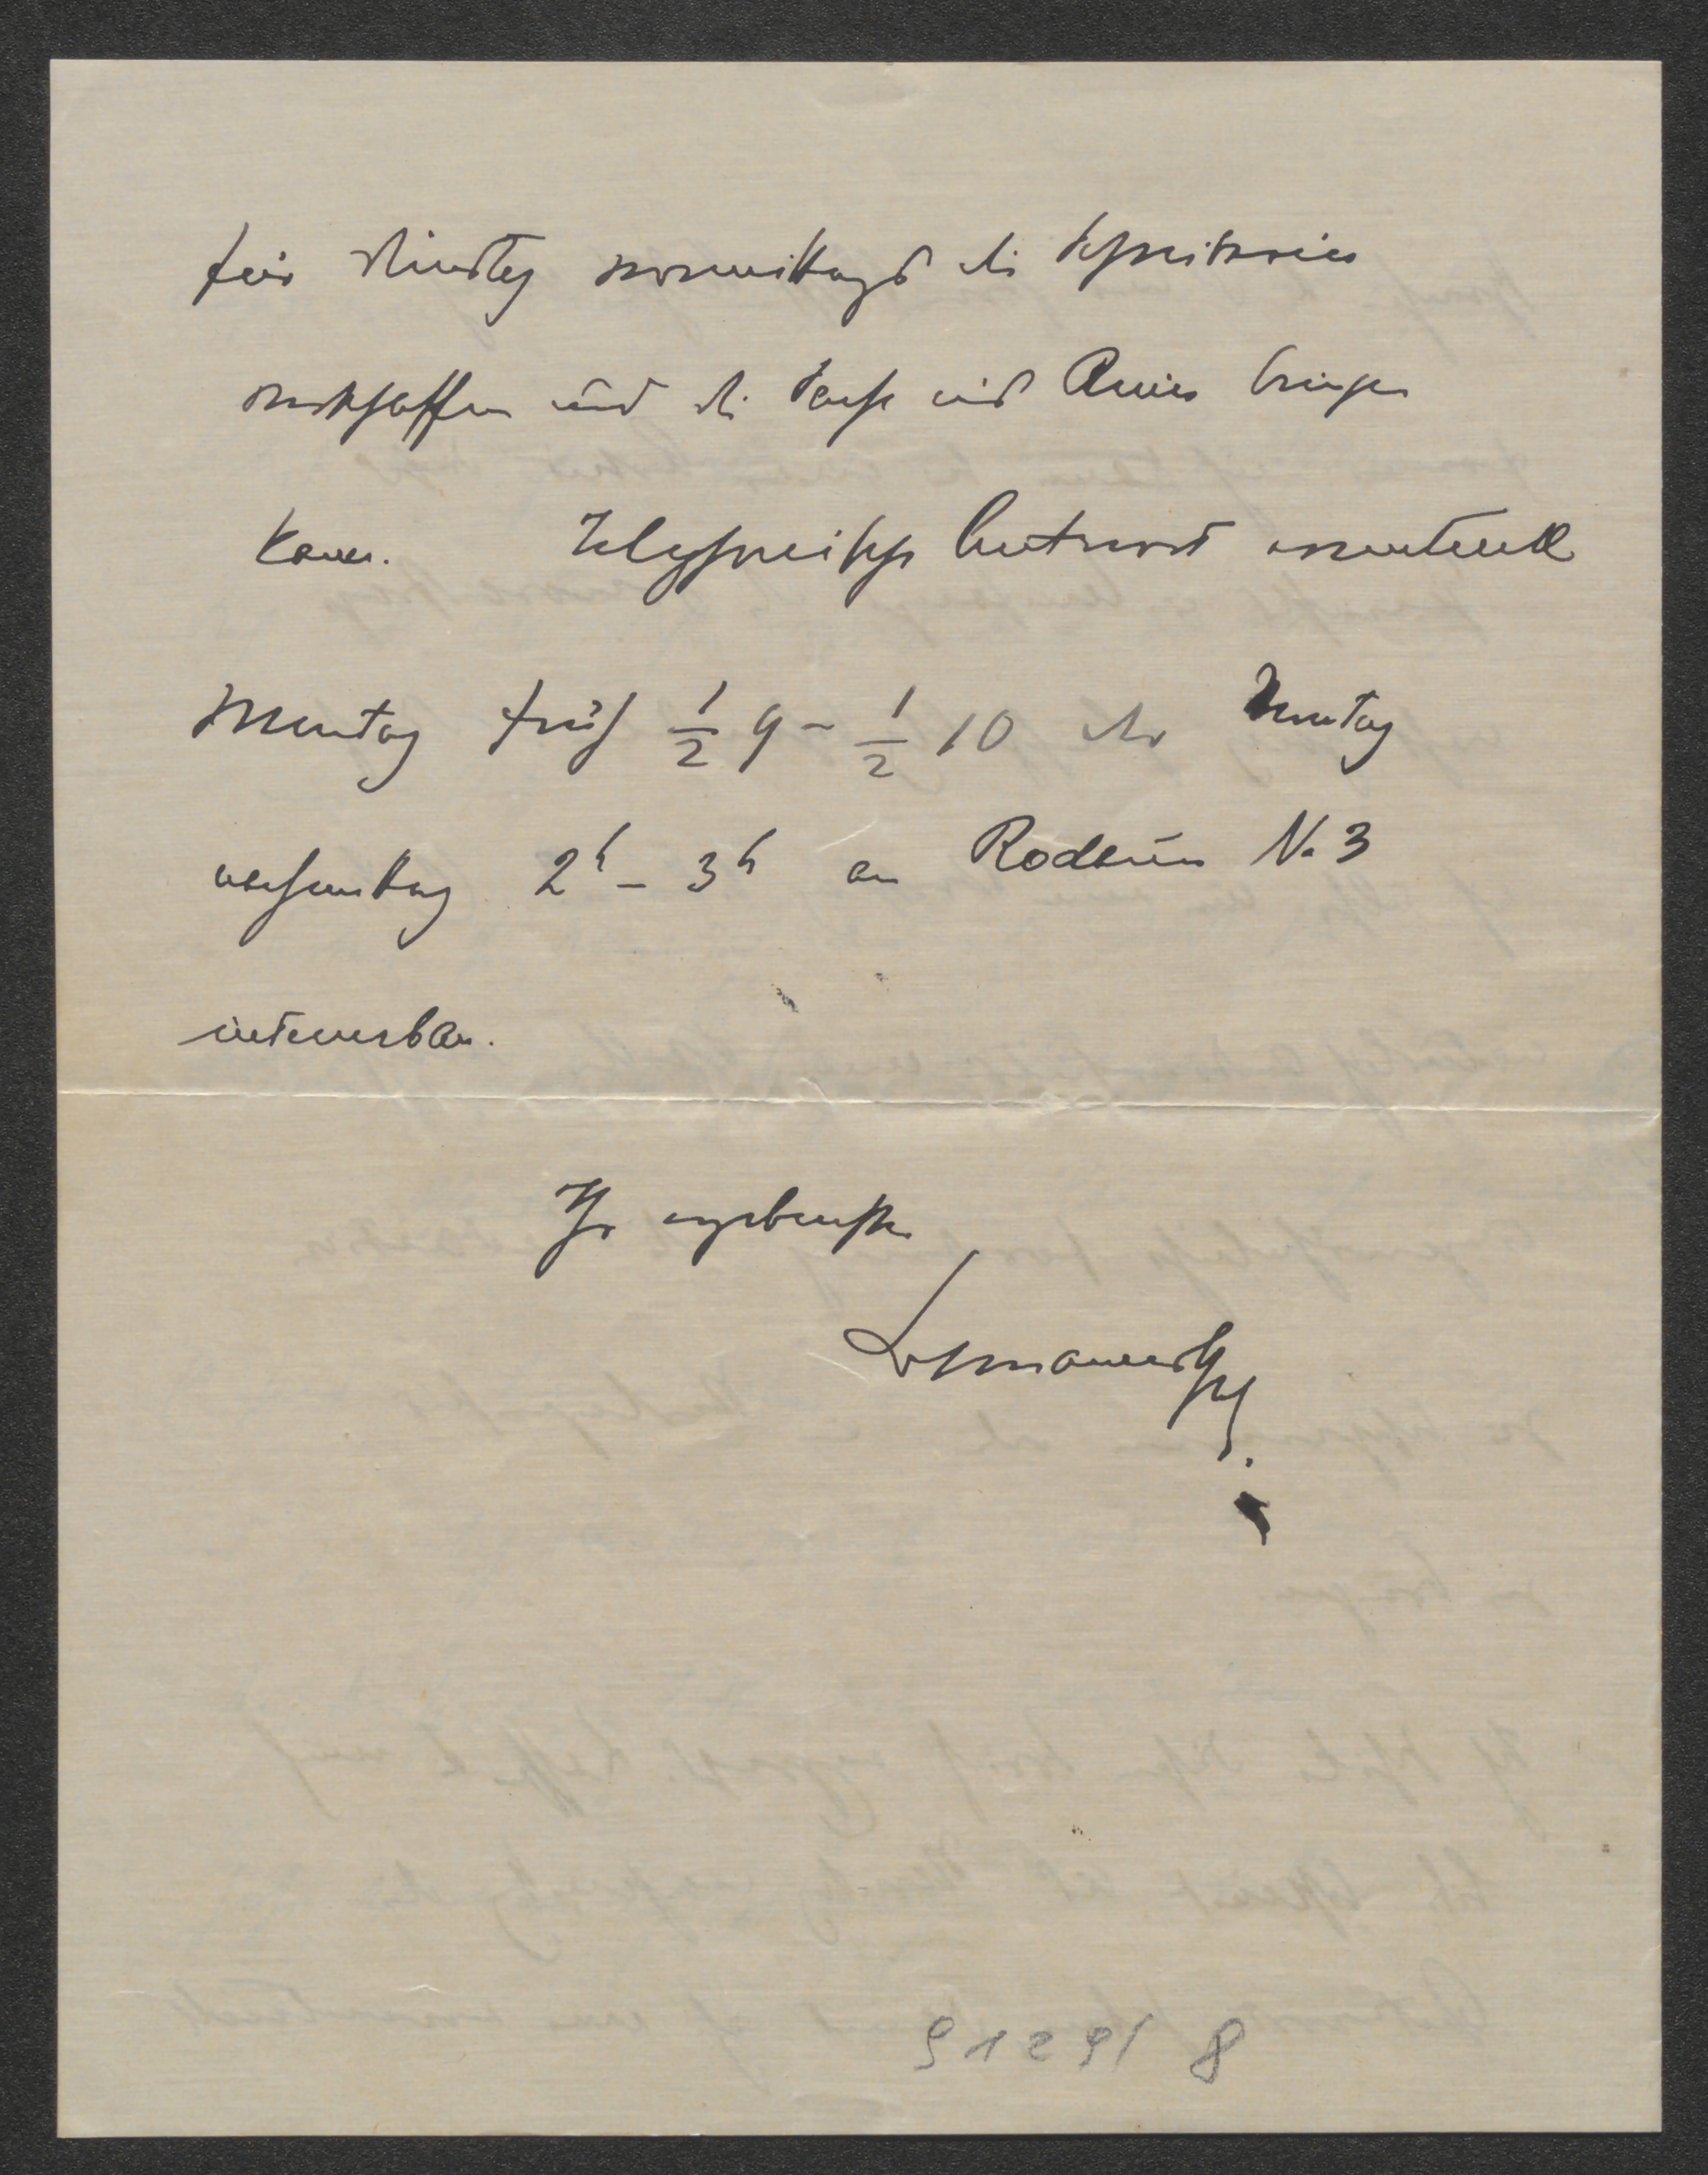 für Dienstag vormittags die Schreiberin
verschaffen und die Sache ins Reine bringen
kann. Telephonische Antwort eventuell
Montag früh ½ 9 - ½ 10 oder Montag
nachmittag 2h - 3h an Rodaun N. 3
interurban.
Ihr ergebenster
Hofmannsthal.
9129/ 8